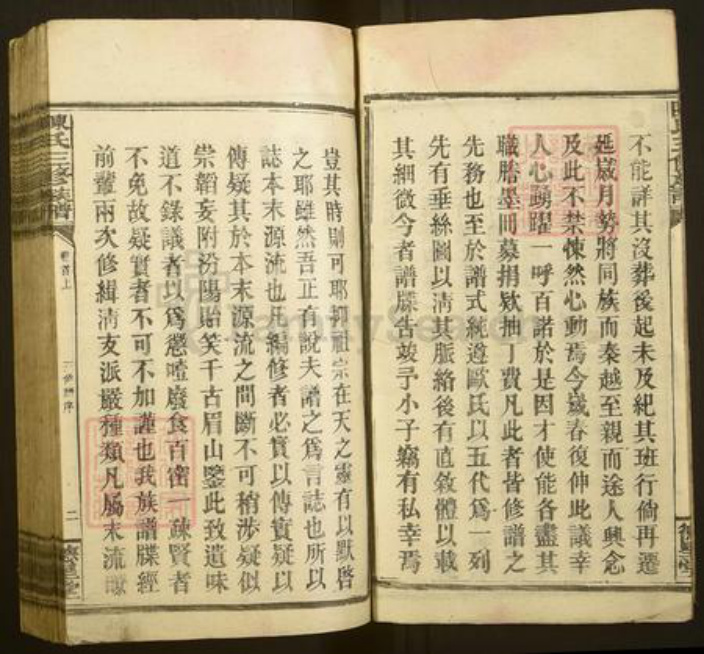 不能詳其沒葬後起未及紀其班行倘再遷
延歲月勢將同族而秦越至親而途人興念
及此不禁悚然心動焉今歲春復伸此議幸
人心踴躍一呼百諾於是因才使能各盡其
職謄墨間募捐欵抽丁費凡此者皆修譜之
先務也至於譜式統遵歐氏以五代爲一列
先有垂絲圖以清其脈絡後有直敘體以載
其細微今者譜牒告竣予小子竊有私幸焉
豈其時則可耶抑祖宗在天之靈有以默啓
之耶雖然吾正有說夫譜之爲言誌也所以
誌本末源流也凡編修者必實以傳實疑以
傳疑其於本末源流之間斷不可稍涉疑似
崇韜妄附汾陽貽笑千古眉山鑒此致遺味
道不錄議者以爲懲噎廢食百密一疎賢者
不免故疑實者不可不加謹也我族譜牒經
前輩兩次修緝淸支派嚴種類凡屬末流
陳氏三修族譜
卷首上
三修 序
二
FamilySearch